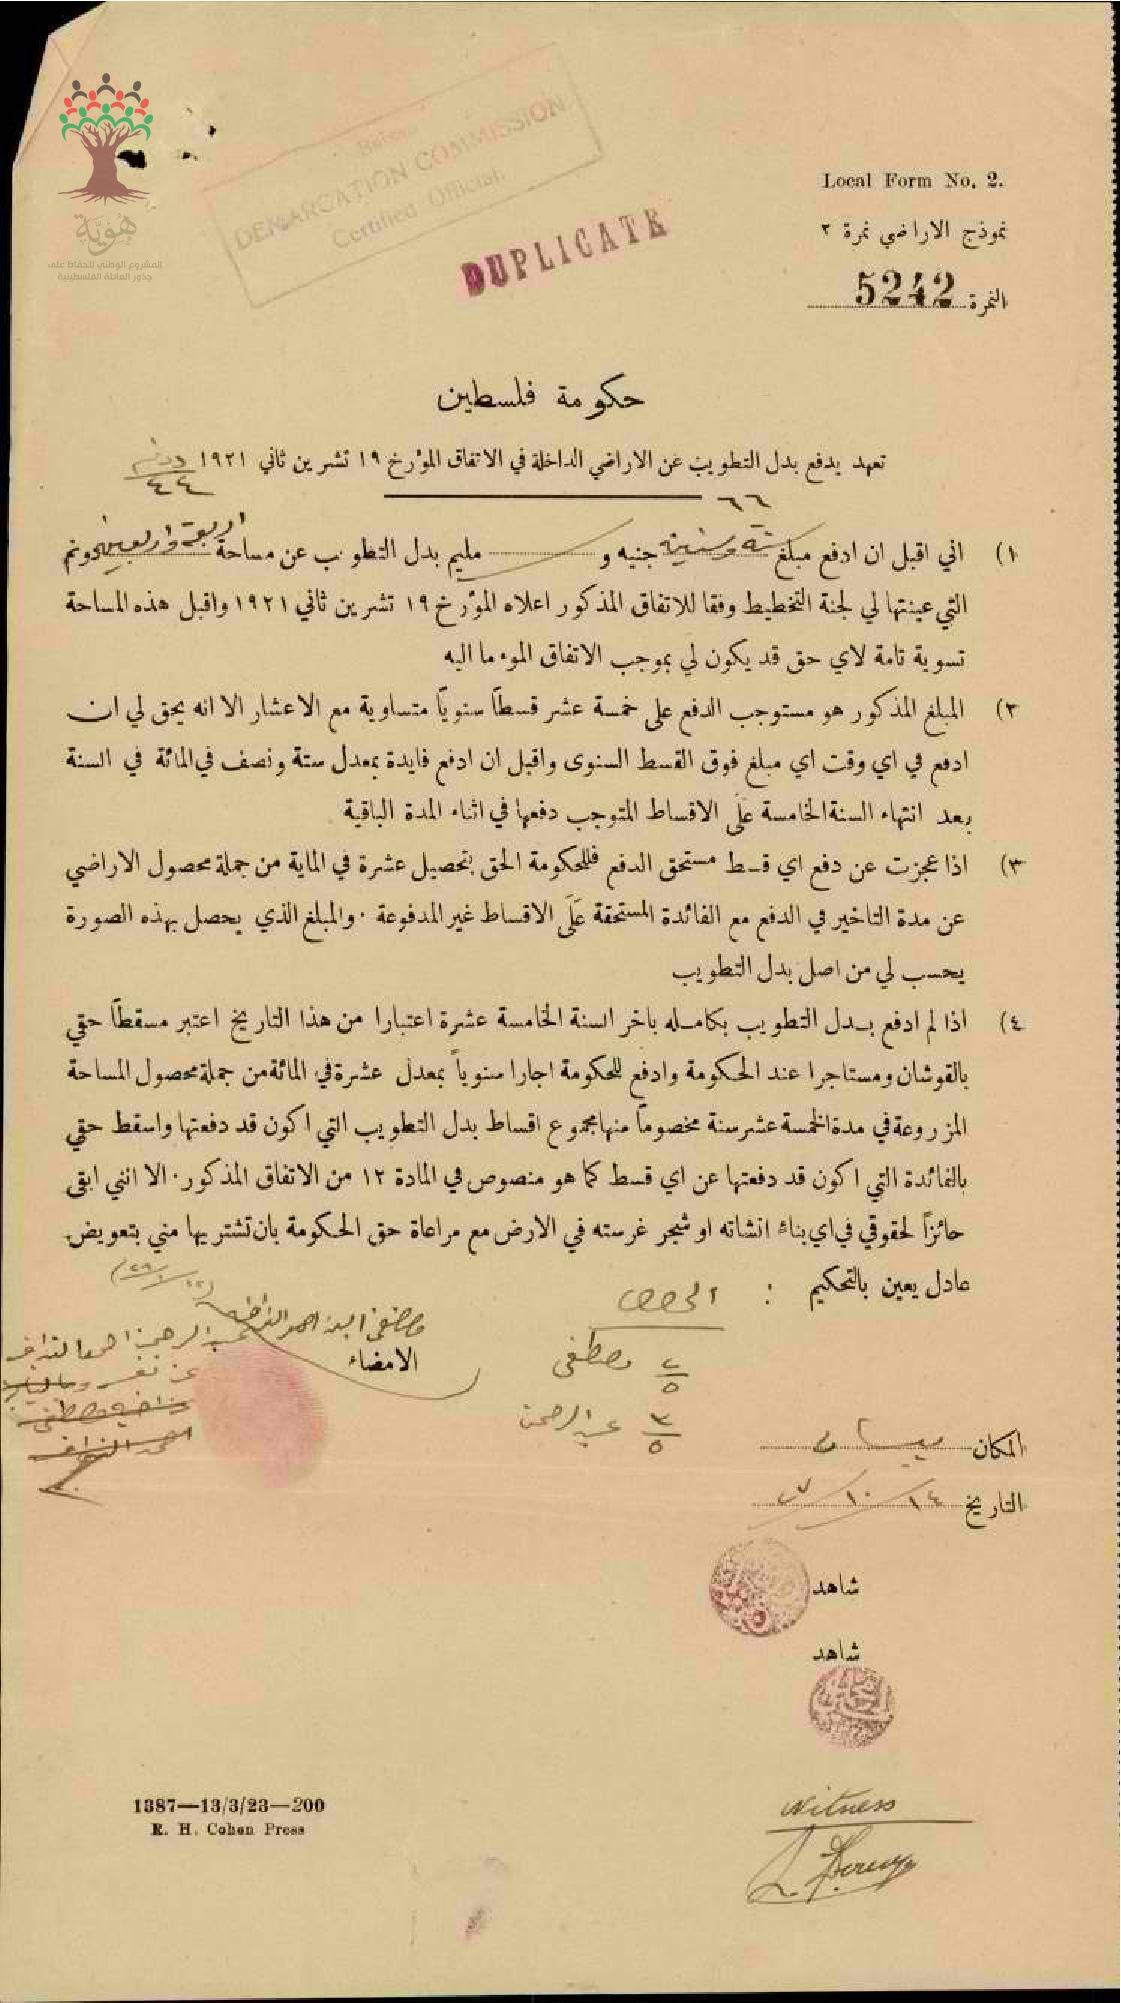 هُويّة
المشروع الوطني للحفاظ على
جذور العائلة الفلسطينية
Beisan
DEMARCATION COMMISSION
Certified Official.
DUPLICATE
Local Form No. 2.
نموذج الاراضي نمرة ٢
النمرة 5242
حكومة فلسطين
تعهد بدفع بدل التطويب عن الاراضي الداخلة في الاتفاق المؤرخ ١٩ تشرين ثاني ١٩٢١
دونم
٤٤
٦٦
١) اني اقبل ان ادفع مبلغ ستة وستين جنيه و مليم بدل التطويب عن مساحة اربعة واربعين دونم
التي عينتها لي لجنة التخطيط وفقا للاتفاق المذكور اعلاه المؤرخ ١٩ تشرين ثاني ١٩٢١ واقبل هذه المساحة
تسوية تامة لاي حق قد يكون لي بموجب الاتفاق الموء ما اليه
٢) المبلغ المذكور هو مستوجب الدفع على خمسة عشر قسطًا سنويًا متساوية مع الاعشار الا انه يحق لي ان
ادفع في اي وقت اي مبلغ فوق القسط السنوى واقبل ان ادفع فايدة بمعدل ستة ونصف في المائة في السنة
بعد انتهاء السنة الخامسة عَلَى الاقساط المتوجب دفعها في اثناء المدة الباقية
٣) اذا عجزت عن دفع اي قسط مستحق الدفع فللحكومة الحق بتحصيل عشرة في الماية من جملة محصول الاراضي
عن مدة التاخير في الدفع مع الفائدة المستحقة عَلَى الاقساط غير المدفوعة . والمبلغ الذي يحصل بهذه الصورة
يحسب لي من اصل بدل التطويب
٤) اذا لم ادفع بدل التطويب بكامله باخر السنة الخامسة عشرة اعتبارا من هذا التاريخ اعتبر مسقطًا حقي
بالقوشان ومستاجرا عند الحكومة وادفع للحكومة اجارا سنوياً بمعدل عشرة في المائة من جملة محصول المساحة
المزروعة في مدة الخمسة عشر سنة مخصوماً منها مجموع اقساط بدل التطويب التي اكون قد دفعتها واسقط حقي
بالفائدة التي اكون قد دفعتها عن اي قسط كما هو منصوص في المادة ١٢ من الاتفاق المذكور . الا انني ابقى
حائزاً لحقوقي في اي بناء انشاته او شجر غرسته في الارض مع مراعاة حق الحكومة بان تشتريها مني بتعويض
عادل يعين بالتحكيم :
الحصص
٢/٥ مصطفى
٣/٥ عبد الرحمن
الامضاء
المكان بيسان
التاريخ ١٤/١٠/٢٧
شاهد
شاهد
witness
1387—13/3/23—200
R. H. Cohen Press